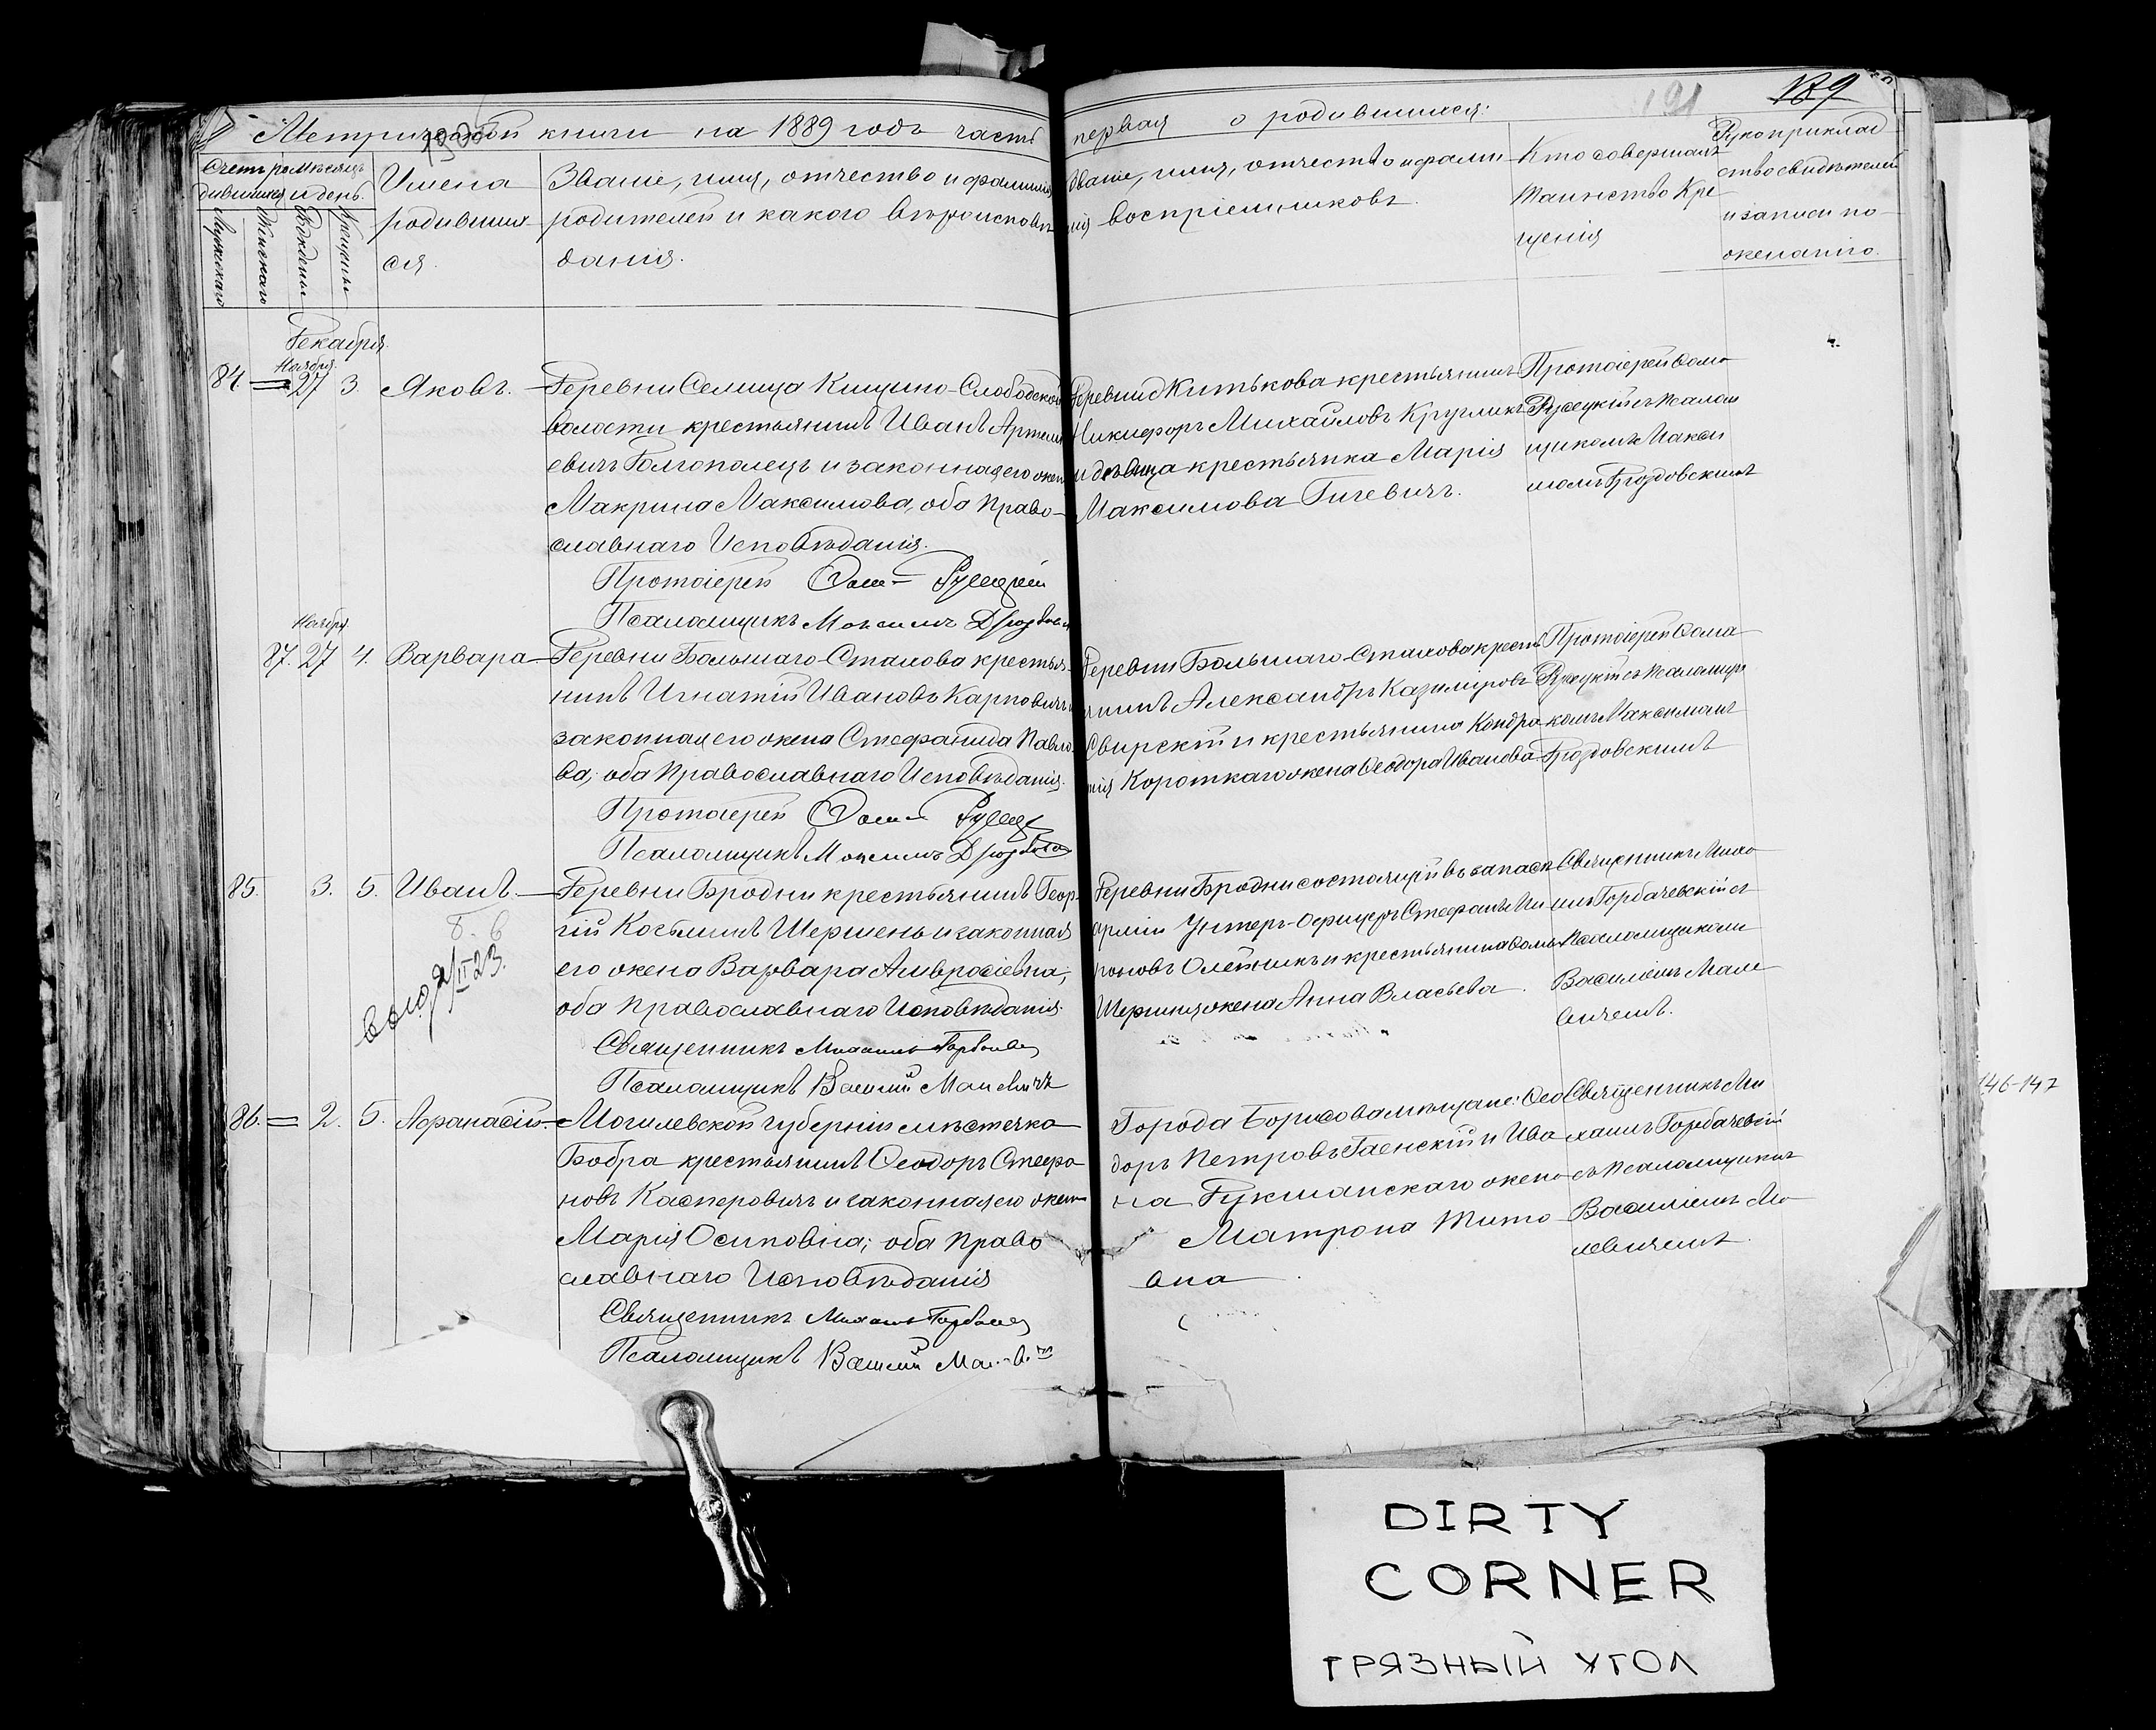 Метрической книги на 1889 годъ часть
первая о родившихся:
191
189
Счетъ ро
дившихся
Мѣсяцъ
и день.
Мужскаго
Женскаго
Рожденія
Крещенія
Имена
родивших
ся.
Званіе, имя, отчество и фамилія
родителей и какого вѣроисповѣ
данія.
Званіе, имя, отчество и фами
лія воспріемниковъ.
Кто совершалъ
таинство Кре
щенія
Рукоприклад
ство свидѣтелей
и записи по
желанію.
Декабря.
Ноября.
84 27 3. Яковъ.
Деревни Селища Кищино-Слободской
волости крестьянинъ Иванъ Артемі
евичъ Долгополецъ и законная его жена
Макрина Максимова, оба Право-
славнаго Исповѣданія.
Протоіерей Руцецкій
Псаломщикъ Максимъ
Деревни Житькова крестьянинъ
Никифоръ Михайловъ Кругликъ
и дѣвица крестьянка Марія
Максимова Гичевичъ.
Протоіерей Ѳома
съ Псалом
щикомъ Макси
момъ
Ноября
87. 27 4. Варвара
Деревни Большаго-Стахова крестья-
нинъ Игнатій Ивановъ Карповичъ и
законная его жена Стефанида Павло-
ва, оба Православнаго Исповѣданія.
Протоіерей
Псаломщикъ Максимъ
Деревни Большаго-Стахова кресть
янинъ Александръ Казиміровъ
Свирскій и крестьянина Кондра
тія Короткаго жена Ѳеодора Иванова
Протоіерей Ѳома
съ Псаломщи
комъ Максимомъ
85. 3. 5. Иванъ.
Деревни Бродни крестьянинъ Геор-
гій Косьминъ Шершень и законная
его жена Варвара Амвросіевна,
оба Православнаго Исповѣданія.
Священникъ Михаилъ Горбаче
Псаломщикъ Василій Малевичъ
II 23.
Деревни Бродни состоящій въ запасѣ
арміи Унтеръ-Офицеръ Стефанъ Ми
роновъ и крестьянина
Шершня жена Анна Власьева.
Священникъ Миха
илъ Горбачевскій съ
Псаломщикомъ
Василіемъ Мале
вичемъ.
86. 2. 5. Аѳанасій
Могилевской губерніи мѣстечка
Бобра крестьянинъ Ѳеодоръ Стефа
новъ Касперовичъ и законная его жена
Марія Осиповна; оба Право
славнаго Исповѣданія
Священникъ Михаилъ Горбаче
Псаломщикъ Василій
Города Борисова мѣщане: Ѳео
доръ Петровъ Гаенскій и Ива
на Гукманскаго жена
Матрона Тимо
вна
Священникъ Ми
хаилъ Горбачевскій
съ Псаломщикомъ
Василіемъ Ма
левичемъ.
146-147
DIRTY
CORNER
ГРЯЗНЫЙ УГОЛ